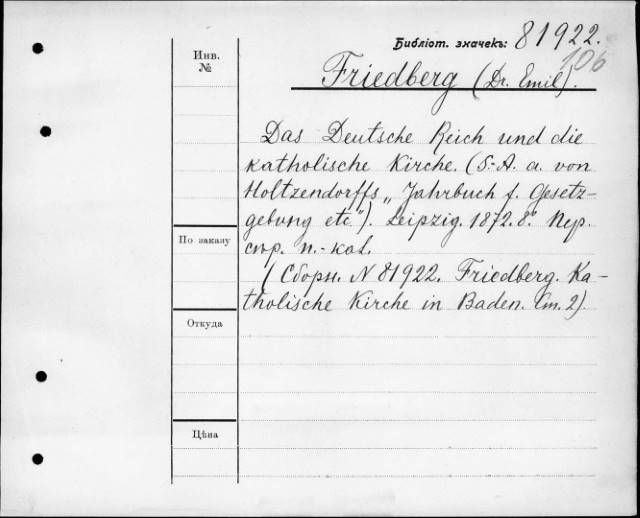 Библіот. значекъ: 81922.
106
Инв.
№
Friedberg (Dr. Emil).
Das Deutsche Reich und die
katholische Kirche. (S.-A. a. von
Holtzendorffs „Jahrbuch f. Gesetz-
gebung etc."). Leipzig. 1872. 8°.
По заказу
(Сборн. N 81922. Friedberg. Ka-
tholische Kirche in Baden. Ст. 2).
Откуда
Цѣна